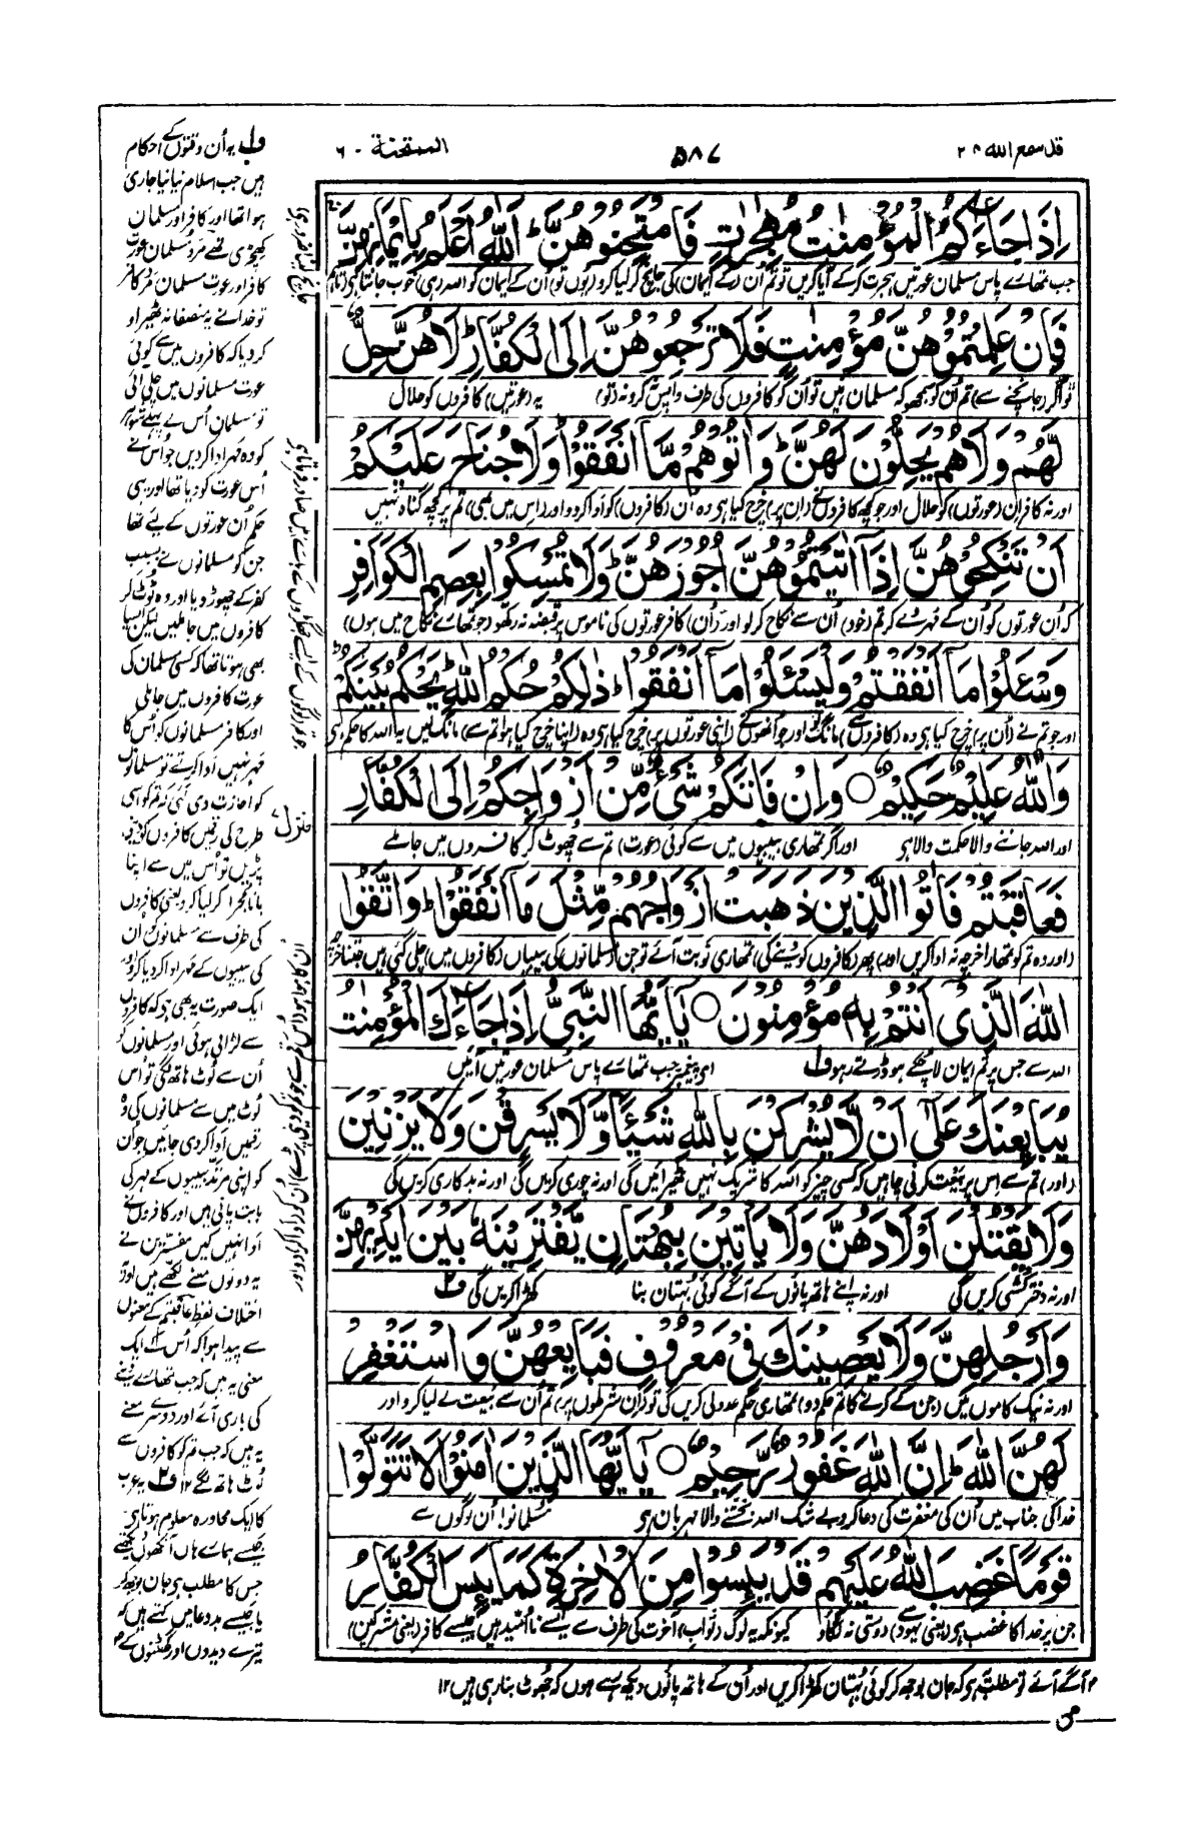 قد سمع الله ٢٨
٥٨٧
الممتحنة ٦٠
اِذَا جَآءَكُمُ الْمُؤْمِنٰتُ مُهٰجِرٰتٍ فَامْتَحِنُوْهُنَّ ؕ اَللّٰهُ اَعْلَمُ بِاِيْمَانِهِنَّ ۚ
جب تمھارے پاس مسلمان عورتیں ہجرت کرکے آیا کریں تو تم اُن (کے ایمان) کی جانچ کر لیا کرو (یوں تو) اُن کے ایمان کو اللہ (ہی) خوب جانتا ہی
فَاِنْ عَلِمْتُمُوْهُنَّ مُؤْمِنٰتٍ فَلَا تَرْجِعُوْهُنَّ اِلَى الْكُفَّارِ ؕ لَا هُنَّ حِلٌّ
تو اگر (جانچنے سے) تم اُن کو سمجھو کہ مسلمان ہیں تو اُن کو کافروں کی طرف واپس نہ کرو (نہ تو) یہ (عورتیں) کافروں کو حلال
لَّهُمْ وَلَا هُمْ يَحِلُّوْنَ لَهُنَّ ؕ وَاٰتُوْهُمْ مَّآ اَنْفَقُوْا ؕ وَلَا جُنَاحَ عَلَيْكُمْ
اور نہ کافر اِن (عورتوں) کو حلال اور جو کچھ کافروں نے (ان پر) خرچ کیا ہی وہ اُن (کافروں) کو ادا کر دو اور (اس میں بھی) تم پر کچھ گناہ نہیں
اَنْ تَنْكِحُوْهُنَّ اِذَآ اٰتَيْتُمُوْهُنَّ اُجُوْرَهُنَّ ؕ وَلَا تُمْسِكُوْا بِعِصَمِ الْكَوَافِرِ
کہ اُن عورتوں کو اُن کے مَہر دے کر تم (خود) اُن سے نکاح کر لو اور (اُن) کافر عورتوں کی ناموس پر قبضہ نہ رکھو (جو تمھارے نکاح میں ہوں)
وَسْـَٔلُوْا مَآ اَنْفَقْتُمْ وَلْيَسْـَٔلُوْا مَآ اَنْفَقُوْا ؕ ذٰلِكُمْ حُكْمُ اللّٰهِ ؕ يَحْكُمُ بَيْنَكُمْ ؕ
اور جو تم نے (اُن پر) خرچ کیا ہی وہ (کافروں سے) مانگ لو اور جو اُنھوں نے (اپنی عورتوں پر) خرچ کیا ہی وہ (اپنا خرچ کیا ہوا تم سے) مانگ لیں یہ اللہ کا حکم ہی
وَاللّٰهُ عَلِيْمٌ حَكِيْمٌ ○ وَاِنْ فَاتَكُمْ شَيْءٌ مِّنْ اَزْوَاجِكُمْ اِلَى الْكُفَّارِ
اور اللہ جاننے والا حکمت والا ہی اور اگر تمھاری بیبیوں میں سے کوئی (عورت) تم سے چھوٹ کر کافروں میں جا ملے
فَعَاقَبْتُمْ فَاٰتُوا الَّذِيْنَ ذَهَبَتْ اَزْوَاجُهُمْ مِّثْلَ مَآ اَنْفَقُوْا ؕ وَاتَّقُوا
(اور وہ تم کو تمھارا خرچہ نہ ادا کریں اور) پھر (کافروں کو دینے کی) تمھاری نوبت آئے تو جن (مسلمانوں) کی بیبیاں (کافروں میں) چلی گئی ہیں جتنا
اللّٰهَ الَّذِيْٓ اَنْتُمْ بِهٖ مُؤْمِنُوْنَ ○ يٰٓاَيُّهَا النَّبِيُّ اِذَا جَآءَكَ الْمُؤْمِنٰتُ
اللہ سے جس پر تم ایمان لا چکے ہو ڈرتے رہو ف۱ اے پیغمبر جب تمھارے پاس مسلمان عورتیں آئیں
يُبَايِعْنَكَ عَلٰٓى اَنْ لَّا يُشْرِكْنَ بِاللّٰهِ شَيْـًٔا وَّلَا يَسْرِقْنَ وَلَا يَزْنِيْنَ
(اور) تم سے اِس پر بیعت کرنی چاہیں کہ کسی چیز کو اللہ کا شریک نہیں ٹھیرائیں گی اور نہ چوری کریں گی اور نہ بدکاری کریں گی
وَلَا يَقْتُلْنَ اَوْلَادَهُنَّ وَلَا يَاْتِيْنَ بِبُهْتَانٍ يَّفْتَرِيْنَهٗ بَيْنَ اَيْدِيْهِنَّ
اور نہ دختر کشی کریں گی اور نہ اپنے ہاتھ پاؤں کے آگے کوئی بہتان بنا کھڑا کریں گی ف۲
وَاَرْجُلِهِنَّ وَلَا يَعْصِيْنَكَ فِيْ مَعْرُوْفٍ فَبَايِعْهُنَّ وَاسْتَغْفِرْ
اور نہ نیک کاموں میں (جن کے کرنے کا تم حکم دو) تمھاری حکم عدولی کریں گی تو (ان شرطوں پر) تم اُن سے بیعت لے لیا کرو اور
لَهُنَّ اللّٰهَ ؕ اِنَّ اللّٰهَ غَفُوْرٌ رَّحِيْمٌ ○ يٰٓاَيُّهَا الَّذِيْنَ اٰمَنُوْا لَا تَتَوَلَّوْا
خدا کی جناب میں اُن کی مغفرت کی دعا کرو بے شک اللہ بخشنے والا مہربان ہی مسلمانو! اُن لوگوں سے
قَوْمًا غَضِبَ اللّٰهُ عَلَيْهِمْ قَدْ يَئِسُوْا مِنَ الْاٰخِرَةِ كَمَا يَئِسَ الْكُفَّارُ
جن پر خدا کا غضب ہو (یعنی یہود) دوستی نہ لگاؤ کیونکہ یہ لوگ (ثواب) آخرت کی طرف سے ایسے نا اُمید ہیں جیسے کافر (یعنی مشرکین)
ف۱ یہ اُن وقتوں کے احکام
ہیں جب اسلام نیا نیا جاری
ہوا تھا اور کافر اور مسلمان
کھچڑی تھے مرد مسلمان عورت
کافر اور عورت مسلمان مرد کافر
تو خدا نے یہ منصفانہ ٹھیراو
کر دیا کہ کافروں میں سے کوئی
عورت مسلمانوں میں چلی آئی
تو مسلمان اُس کے پہلے شوہر
کو وہ مہر ادا کر دیں جو اُس نے
اُس عورت کو دیا تھا اور یہی
حکم اُن عورتوں کے لیے تھا
جن کو مسلمانوں نے بسبب
کفر کے چھوڑ دیا اور وہ ٹوٹ کر
کافروں میں جا ملیں لیکن ایسا
بھی ہوتا تھا کہ کسی مسلمان کی
عورت کافروں میں جا ملی
اور کافر مسلمانوں کو اُس کا
مہر نہیں ادا کرتے تو مسلمانوں
کو اجازت دی گئی کہ تم کو اسی
طرح کی رقمیں کافروں کو دینی
پڑیں تو اُس میں سے اپنا
مجرا کر لیا کرو یعنی کافروں
کی طرف سے مسلمانوں کو ان
کی بیبیوں کے مہر ادا کر دیا کرو اور
ایک صورت یہ بھی ہی کہ کافروں
سے لڑائی ہوئی اور مسلمانوں کو
اُن سے لُوٹ ہاتھ لگی تو اُس
لُوٹ میں سے مسلمانوں کی وہ
رقمیں ادا کر دی جائیں جو اُن
کو اپنی مرتد بیبیوں کے مہر کی
بابت پانی ہیں اور کافروں نے
ادا نہیں کیں مفسّرین نے
یہ دونوں معنے لکھے ہیں اور
اختلاف لفظ عاقبتم کے معنوں
سے پیدا ہوا کہ اُس کے ایک
معنی یہ ہیں کہ جب تمھارے دینے
کی باری آئے اور دوسرے معنے
یہ ہیں کہ جب تم کو کافروں سے
لُوٹ ہاتھ لگے ۱۲ ف۲ یہ عرب
کا ایک محاورہ معلوم ہوتا ہی
جیسے ہمارے ہاں آنکھوں دیکھتے
جس کا مطلب ہی جان بوجھ کر
یا جیسے بددعا میں کہتے ہیں کہ
تیرے دیدوں اور گھٹنوں کے
منزل ۷
آگے آئے تو مطلب یہ ہی کہ جان بوجھ کر کوئی بہتان کھڑا کریں اور اُن کے ہاتھ پاؤں دیکھ رہے ہوں کہ جھوٹ بنا رہی ہیں ۱۲